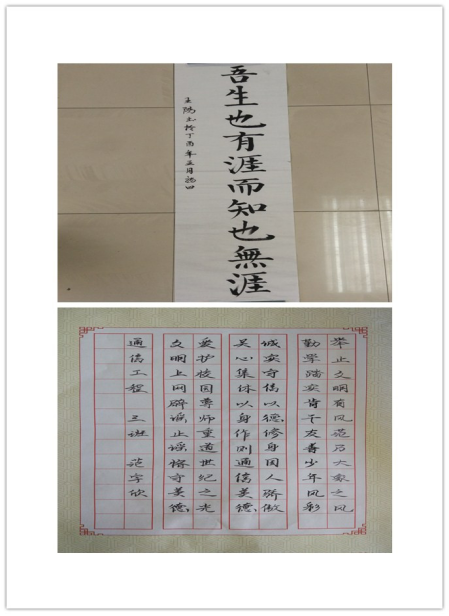 吾生也有涯而知也無涯
丁酉年正月初四
举止文明有风范乃大家之风
勤学踏实肯干友青少年风彩
诚实守信以德修身国人骄傲
关心集体以身作则通信美德
爱护校园尊师重道世纪之光
文明上网辟谣止谣恪守美德
通信工程 三班 范宇欣